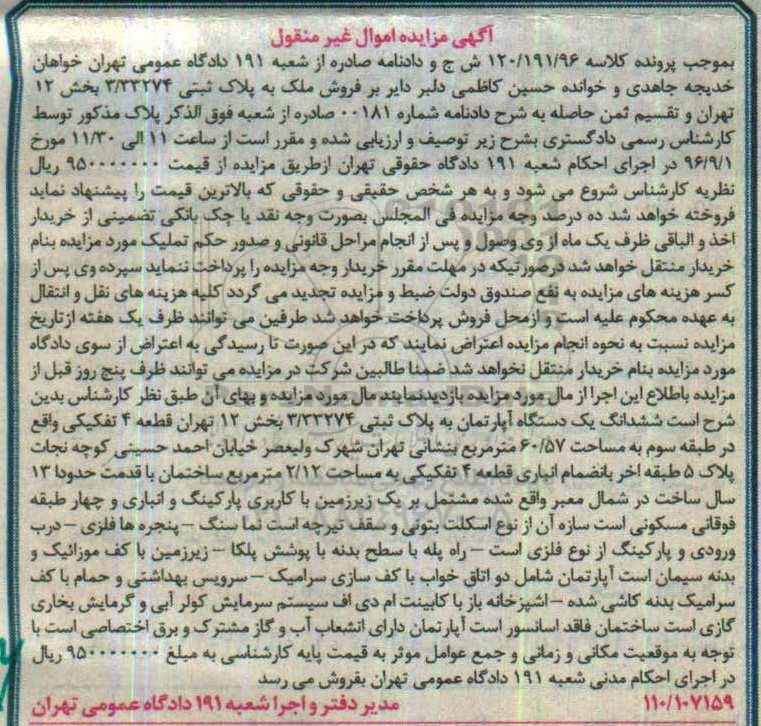 آگهی مزایده اموال غیر منقول
بموجب پرونده کلاسه ۱۲۰/۱۹۱/۹۶ ش ج و دادنامه صادره از شعبه ۱۹۱ دادگاه عمومی تهران خواهان
خدیجه جاهدی و خوانده حسین کاظمی دلبر دایر بر فروش ملک به پلاک ثبتی ۳/۳۳۲۷۴ بخش ۱۲
تهران و تقسیم ثمن حاصله به شرح دادنامه شماره ۰۰۱۸۱ صادره از شعبه فوق الذکر پلاک مذکور توسط
کارشناس رسمی دادگستری بشرح زیر توصیف و ارزیابی شده و مقرر است از ساعت ۱۱ الی ۱۱/۳۰ مورخ
۹۶/۹/۱ در اجرای احکام شعبه ۱۹۱ دادگاه حقوقی تهران ازطریق مزایده از قیمت ۹۵۰۰۰۰۰۰۰۰ ریال
نظریه کارشناس شروع می شود و به هر شخص حقیقی و حقوقی که بالاترین قیمت را پیشنهاد نماید
فروخته خواهد شد ده درصد وجه مزایده فی المجلس بصورت وجه نقد یا چک بانکی تضمینی از خریدار
اخذ و الباقی ظرف یک ماه از وی وصول و پس از انجام مراحل قانونی و صدور حکم تملیک مورد مزایده بنام
خریدار منتقل خواهد شد درصورتیکه در مهلت مقرر خریدار وجه مزایده را پرداخت ننماید سپرده وی پس از
کسر هزینه های مزایده به نفع صندوق دولت ضبط و مزایده تجدید می گردد کلیه هزینه های نقل و انتقال
به عهده محکوم علیه است و ازمحل فروش پرداخت خواهد شد طرفین می توانند ظرف یک هفته ازتاریخ
مزایده نسبت به نحوه انجام مزایده اعتراض نمایند که در این صورت تا رسیدگی به اعتراض از سوی دادگاه
مورد مزایده بنام خریدار منتقل نخواهد شد ضمنا طالبین شرکت در مزایده می توانند ظرف پنج روز قبل از
مزایده باطلاع این اجرا از مال مورد مزایده بازدیدنمایند مال مورد مزایده و بهای آن طبق نظر کارشناس بدین
شرح است ششدانگ یک دستگاه آپارتمان به پلاک ثبتی ۳/۳۳۲۷۴ بخش ۱۲ تهران قطعه ۴ تفکیکی واقع
در طبقه سوم به مساحت ۶۰/۵۷ مترمربع بنشانی تهران شهرک ولیعصر خیابان احمد حسینی کوچه نجات
پلاک ۵ طبقه اخر بانضمام انباری قطعه ۴ تفکیکی به مساحت ۲/۱۲ مترمربع ساختمان با قدمت حدودا ۱۳
سال ساخت در شمال معبر واقع شده مشتمل بر یک زیرزمین با کاربری پارکینگ و انباری و چهار طبقه
فوقانی مسکونی است سازه آن از نوع اسکلت بتونی و سقف تیرچه است نما سنگ – پنجره ها فلزی – درب
ورودی و پارکینگ از نوع فلزی است – راه پله با سطح بدنه با پوشش پلکا – زیرزمین با کف موزائیک و
بدنه سیمان است آپارتمان شامل دو اتاق خواب با کف سازی سرامیک – سرویس بهداشتی و حمام با کف
سرامیک بدنه کاشی شده – اشپزخانه باز با کابینت ام دی اف سیستم سرمایش کولر آبی و گرمایش بخاری
گازی است ساختمان فاقد اسانسور است آپارتمان دارای انشعاب آب و گاز مشترک و برق اختصاصی است با
توجه به موقعیت مکانی و زمانی و جمع عوامل موثر به قیمت پایه کارشناسی به مبلغ ۹۵۰۰۰۰۰۰۰۰ ریال
در اجرای احکام مدنی شعبه ۱۹۱ دادگاه عمومی تهران بفروش می رسد
۱۱۰/۱۰۷۱۵۹ مدیر دفتر و اجرا شعبه ۱۹۱ دادگاه عمومی تهران